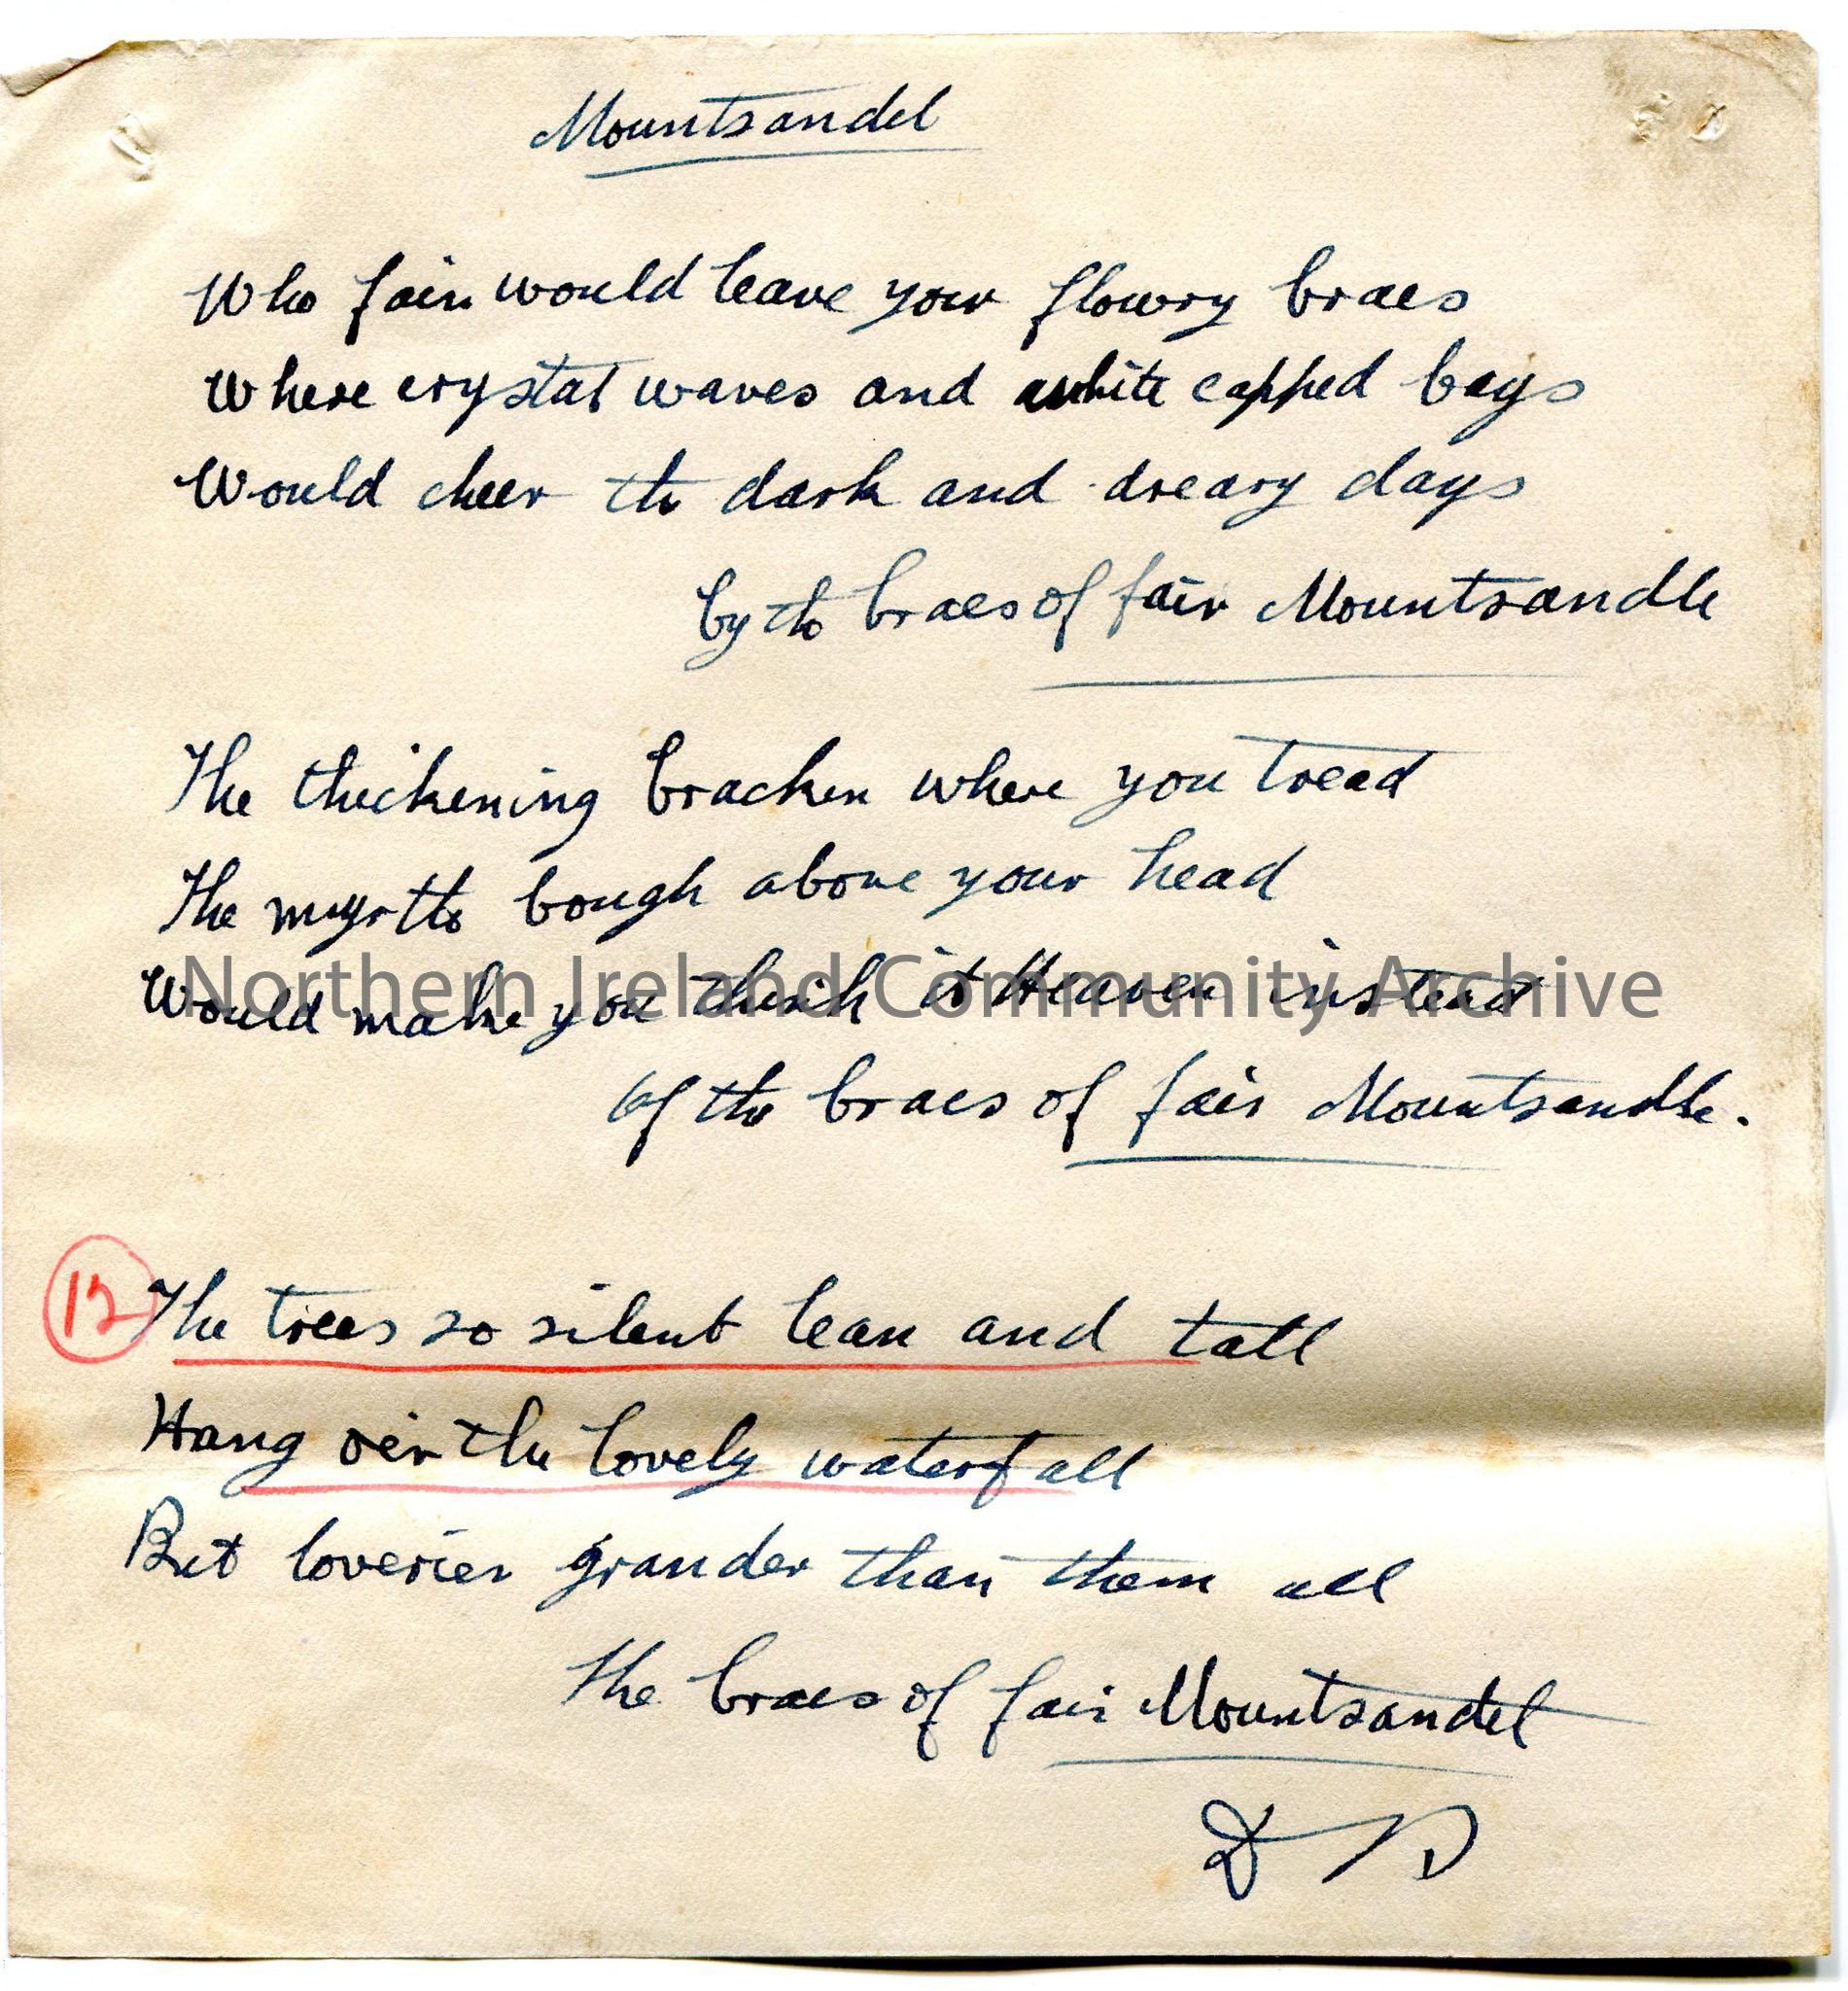 Mountsandel
Who fain would leave your flowry braes
Where crystal waves and white capped bays
Would cheer the dark and dreary days
by the braes of fair Mountsandle
The thickening bracken where you tread
The myrtle bough above your head
Would make you think it Heaven instead
Northern Ireland Community Archive
of the braes of fair Mountsandle.
12 The trees so silent lean and tall
Hang oer the lovely waterfall
But lovelier grander than them all
The braes of fair Mountsandel